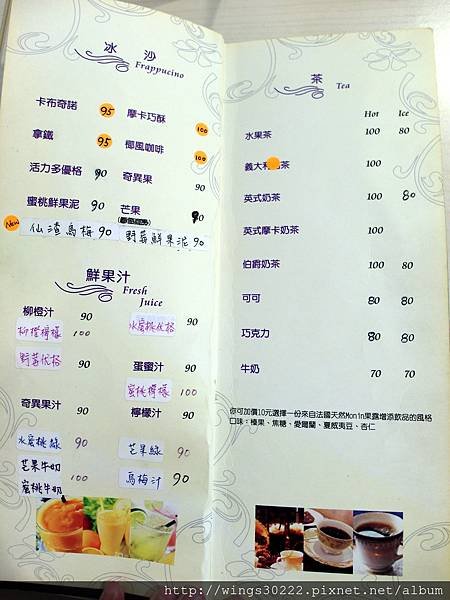 冰沙
Frappucino
卡布奇諾 95 摩卡巧酥 100
拿鐵 95 椰風咖啡 100
活力多優格 90 奇異果 90
蜜桃鮮果泥 90 芒果 90
New 仙渣烏梅 90 野莓鮮果泥 90
鮮果汁
Fresh
Juice
柳橙汁 90
柳橙檸檬 100 水蜜桃优格 90
野莓优格 90 蛋蜜汁 90
蜜桃檸檬 100
奇異果汁 90 檸檬汁 90
水蜜桃綠 90 芒果綠 90
芒果牛奶
蜜桃牛奶 100 烏梅汁 90
茶
Tea
Hot Ice
水果茶 100 80
義大利 茶 100
英式奶茶 100 80
英式摩卡奶茶 100
伯爵奶茶 100 80
可可 80 80
巧克力 80 80
牛奶 70 70
你可加價10元選擇一份來自法國天然Monin果露增添飲品的風格
口味：榛果、焦糖、愛爾蘭、夏威夷豆、杏仁
http://wings30222.pixnet.net/album